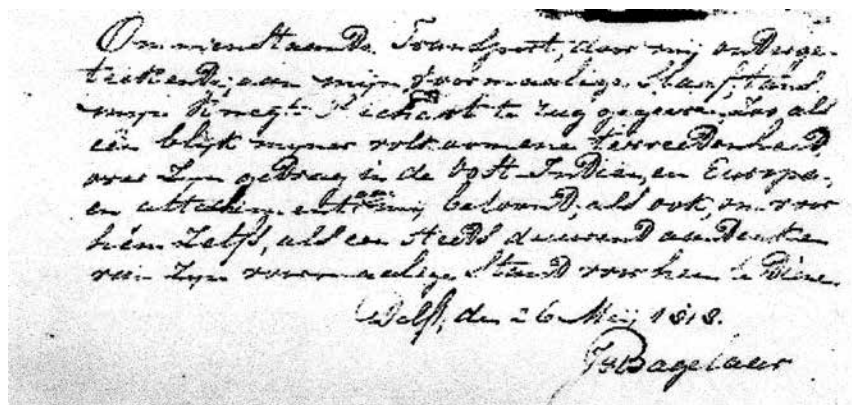 Ommenstaande Transport, door mij onderge-
tekende, aan mijn voormaalige Slaaf, thans
mijn Knegt te rug gegeven, zo als
een blijk mijner volkoomene tevreedenheid
over zijn gedrag in de Oost-Indien, en Europa,
en attachement aan mij betoond, als ook, om voor
hem zelfs, als een steeds duurend aandenken
van zijn voormaalige Stand voor hem te diene.
Delft, den 26 Meij 1818.
Bagelaar